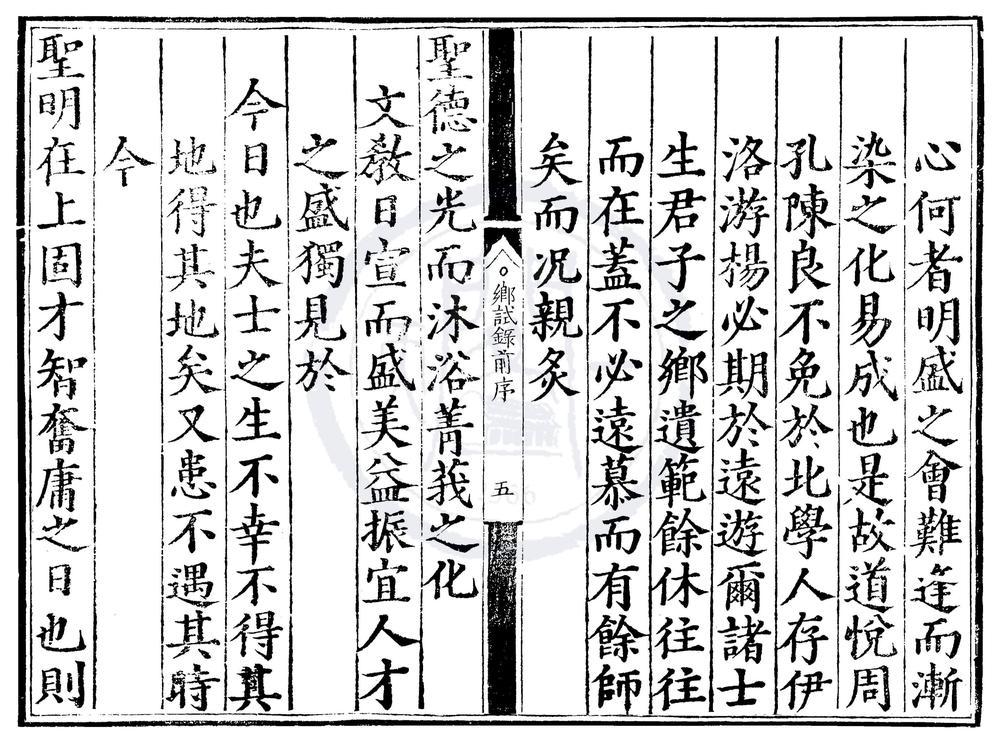 心何者明盛之會難逢而漸
染之化易成也是故道悅周
孔陳良不免於北學人存伊
洛游楊必期於遠遊爾諸士
生君子之鄉遺範餘休往往
而在蓋不必遠慕而有餘師
矣而况親炙
鄉試錄前序 五
聖德之光而沐浴菁莪之化
文教日宣而盛美益振宜人才
之盛獨見於
今日也夫士之生不幸不得其
地得其地矣又患不遇其時
今
聖明在上固才智奮庸之日也則